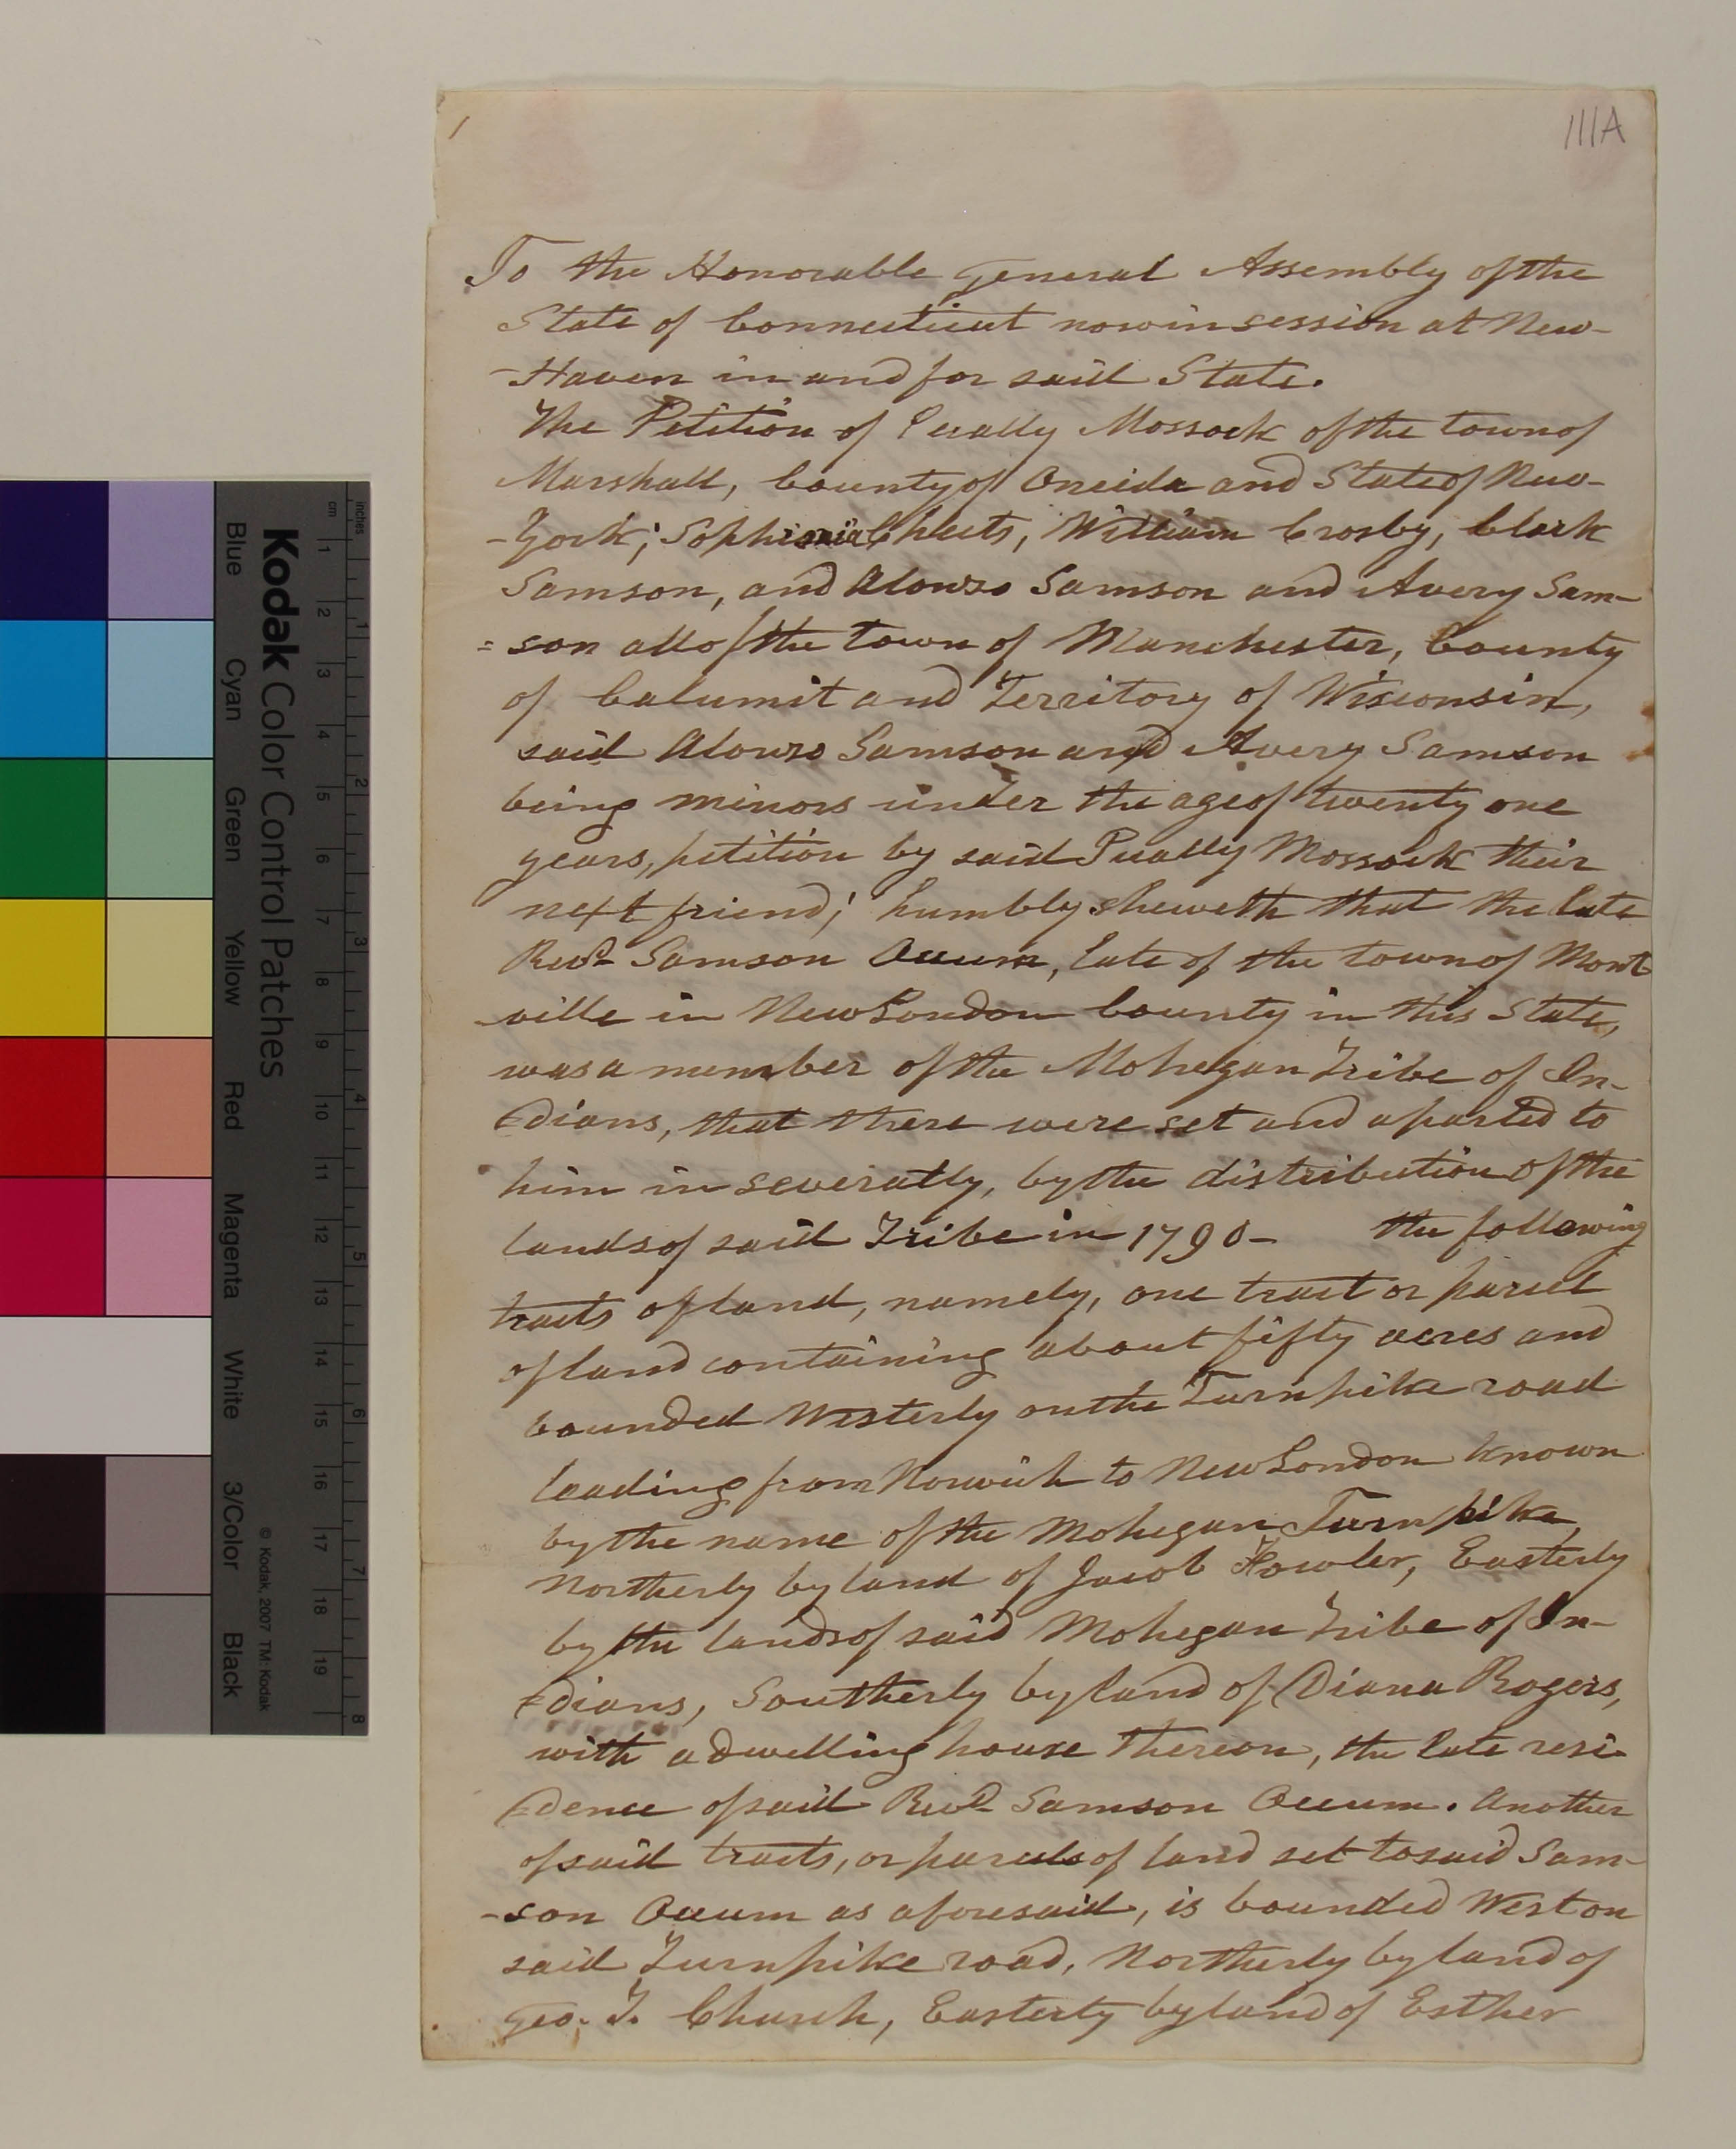 111A
To the Honorable General Assembly of the
State of Connecticut now in session at New-
-Haven in and for said State.
The Petition of Pually Mossock of the town of
Marshall, County of Oneida and State of New-
-York; Sophronia Cheets, William Crosby, Clark
Samson, and Alonzo Samson and Avery Sam-
=son all of the town of Manchester, County
of Calumit and Territory of Wisconsin,
said Alonzo Samson and Avery Samson
being minors under the age of twenty one
years, petition by said Pually Mossock their
next friend; humbly sheweth that the late
Revd Samson Occum, late of the town of Mont
-ville in New London County in this State,
was a member of the Mohegan Tribe of In-
-dians, that there were set and aparted to
him in severalty, by the distribution of the
lands of said Tribe in 1790- the following
tracts of land, namely, one tract or parcel
of land containing about fifty acres and
bounded Westerly on the Turnpike road
leading from Norwich to New London known
by the name of the Mohegan Turnpike,
Northerly by land of Jacob Fowler, Easterly
by the lands of said Mohegan Tribe of In-
-dians, Southerly by land of Diana Rogers,
with a dwelling house thereon, the late resi-
-dence of said Revd Samson Occum. Another
of said tracts, or parcels of land set to said Sam-
-son Occum as aforesaid, is bounded West on
said Turnpike road, Northerly by land of
Geo. T. Church, Easterly by land of Esther
Kodak Color Control Patches
© Kodak, 2007 TM: Kodak
Blue Cyan Green Yellow Red Magenta White 3/Color Black
inches
1 2 3 4 5 6 7 8
cm
1 2 3 4 5 6 7 8 9 10 11 12 13 14 15 16 17 18 19